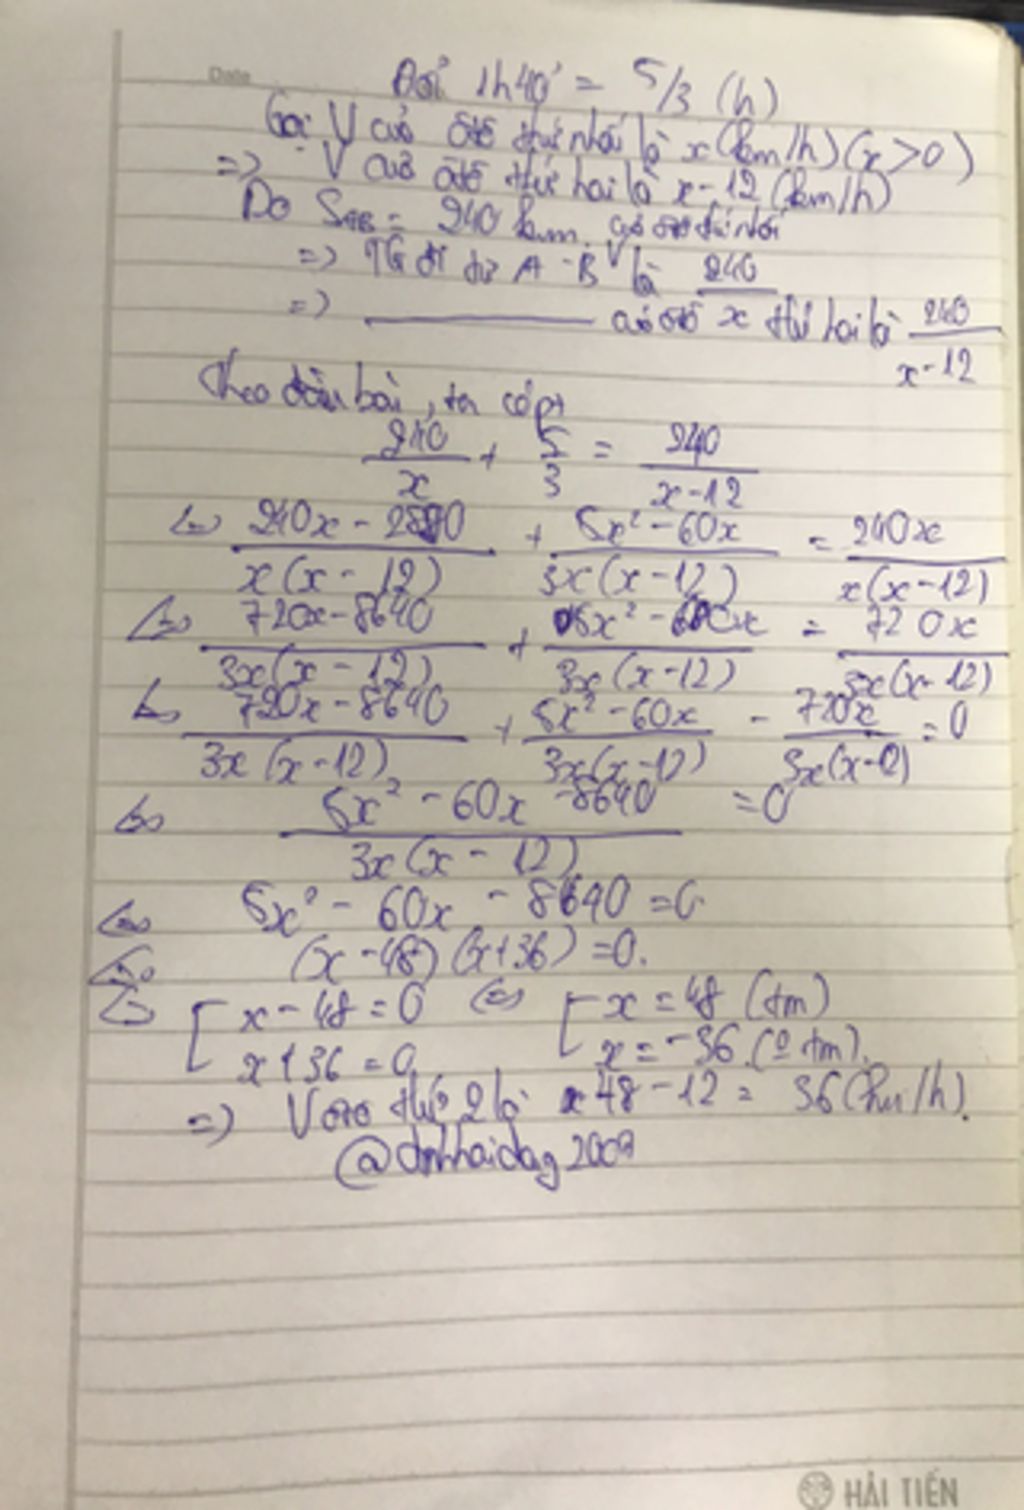 Date
Đổi 1h40' = 5/3 (h)
Gọi V của ôtô thứ nhất là x (km/h) (x > 0)
=> V của ôtô thứ hai là x - 12 (km/h)
Do SAB = 240 km
=> TG đi từ A - B của ôtô thứ nhất là 240/x
=> ———— của ôtô thứ hai là 240/(x-12)
Theo đầu bài, ta có pt
240/x + 5/3 = 240/(x-12)
<=> (240x - 2880)/(x(x - 12)) + (5x² - 60x)/(3x(x - 12)) = 240x/(x(x - 12))
<=> (720x - 8640)/(3x(x - 12)) + (5x² - 60x)/(3x(x - 12)) = 720x/(3x(x - 12))
<=> (720x - 8640)/(3x(x - 12)) + (5x² - 60x)/(3x(x - 12)) - 720x/(3x(x - 12)) = 0
<=> (5x² - 60x - 8640)/(3x(x - 12)) = 0
<=> 5x² - 60x - 8640 = 0
<=> (x - 48) (x + 36) = 0.
<=> [ x - 48 = 0 <=> [ x = 48 (tm)
x + 36 = 0 x = -36 (0 tm).
=> V ôtô thứ 2 là 48 - 12 = 36 (km/h).
HẢI TIẾN